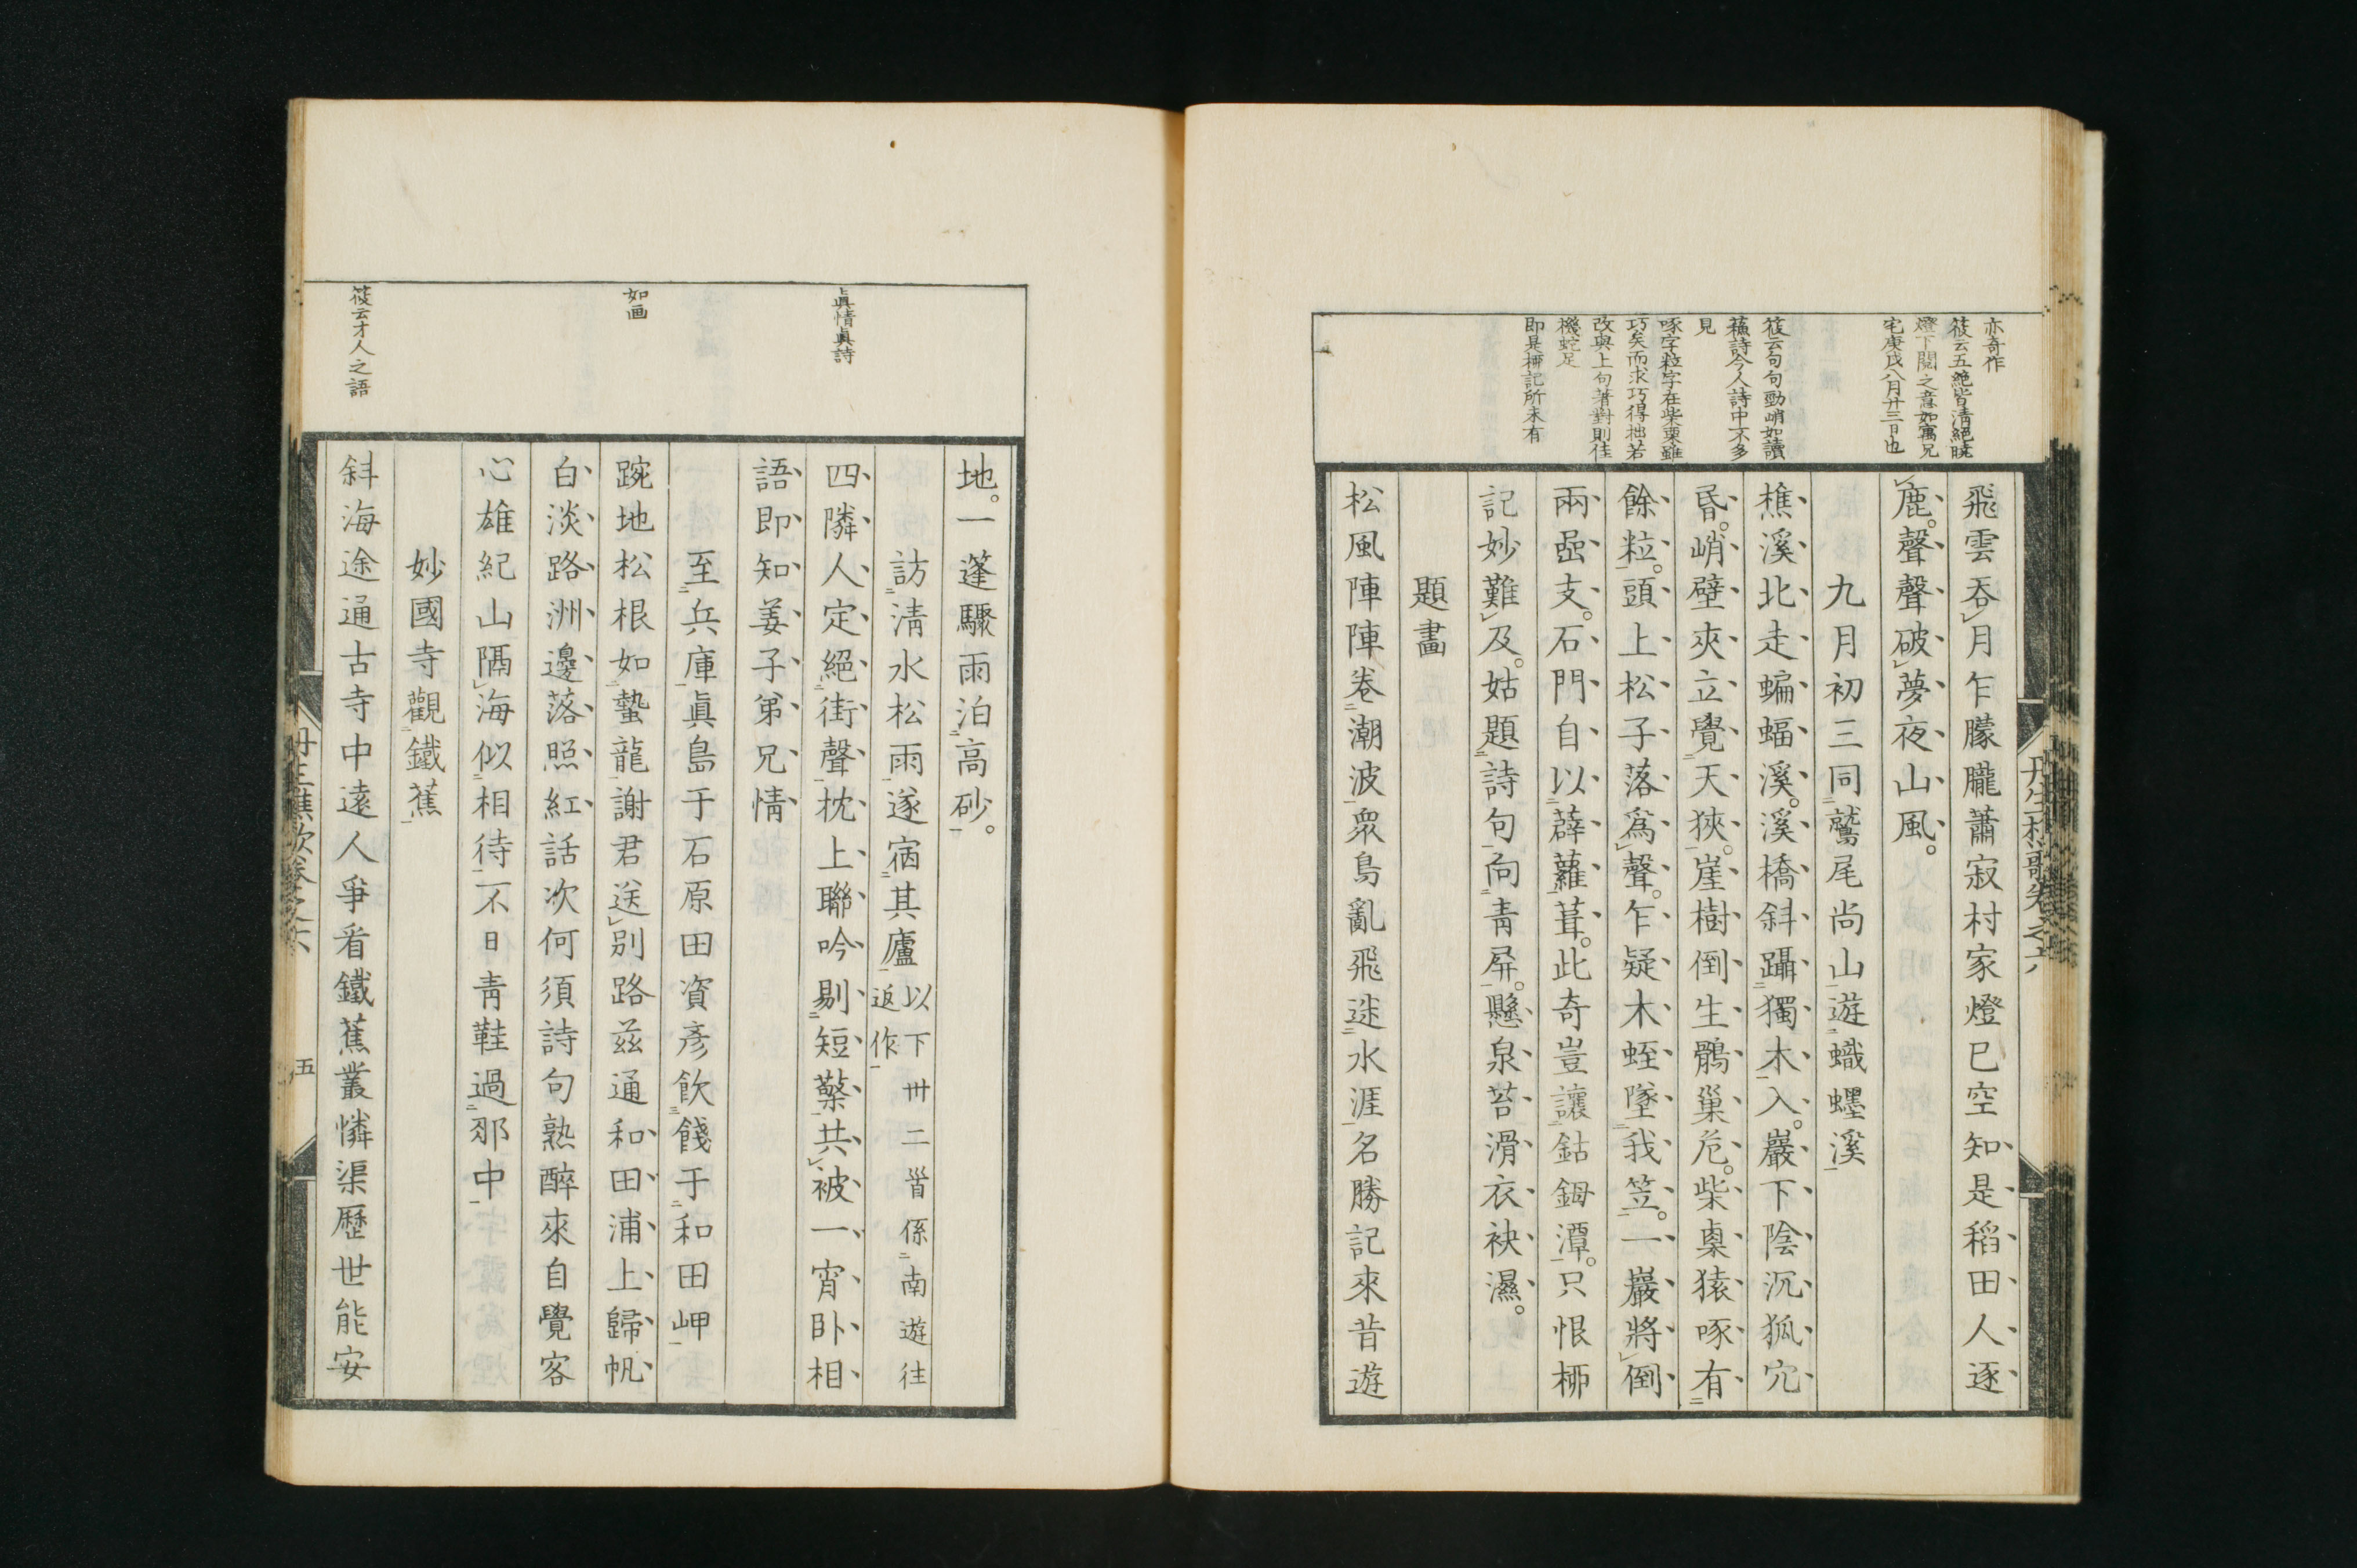 亦奇作
筱云五絶皆淸絶曉
燈下閲之意如寓兄
宅庚戌八月廿三日也
筱云句句勁峭如讀
蘓詩今人詩中不多
見
啄字粒字在柴栗雖
巧矣而求巧得拙若
改與上句著對則佳
機蛇足
即是栁記所未有
飛雲呑月乍朦朧蕭寂村家燈已空知是稻田人逐
鹿。聲聲破夢夜山風。
九月初三同鷲尾尚山遊蟙䘃溪
樵溪北走蝙蝠溪。溪橋斜躡獨木入。巖下陰沉狐穴
昏。峭壁夾立覺天狹。崖樹倒生鶻巢危。柴㮚猿啄有
餘粒。頭上松子落爲聲。乍疑木蛭墜我笠。一巖將倒
兩嵒支。石門自以薜蘿葺。此奇豈讓鈷鉧潭。只恨栁
記妙難及。姑題詩句向靑屛。懸泉苔滑衣袂濕。
題畵
松風陣陣卷潮波衆鳥亂飛迷水涯名勝記來昔遊
丹生樵歌卷之六
地。一蓬驟雨泊高砂。
訪淸水松雨遂宿其廬以下卅二首係南遊往
返作
四隣人定絕街聲枕上聯吟剔短檠共被一宵卧相
語即知姜子弟兄情
至兵庫眞島于石原田資彥飮餞于和田岬
踠地松根如蟄龍謝君送別路茲通和田浦上歸帆
白淡路洲邊落照紅話次何須詩句熟醉來自覺客
心雄紀山隔海似相待不日靑鞋過那中
妙國寺觀鐵蕉
斜海途通古寺中遠人爭看鐵蕉叢憐渠歷世能安
眞情眞詩
如画
筱云才人之語
五